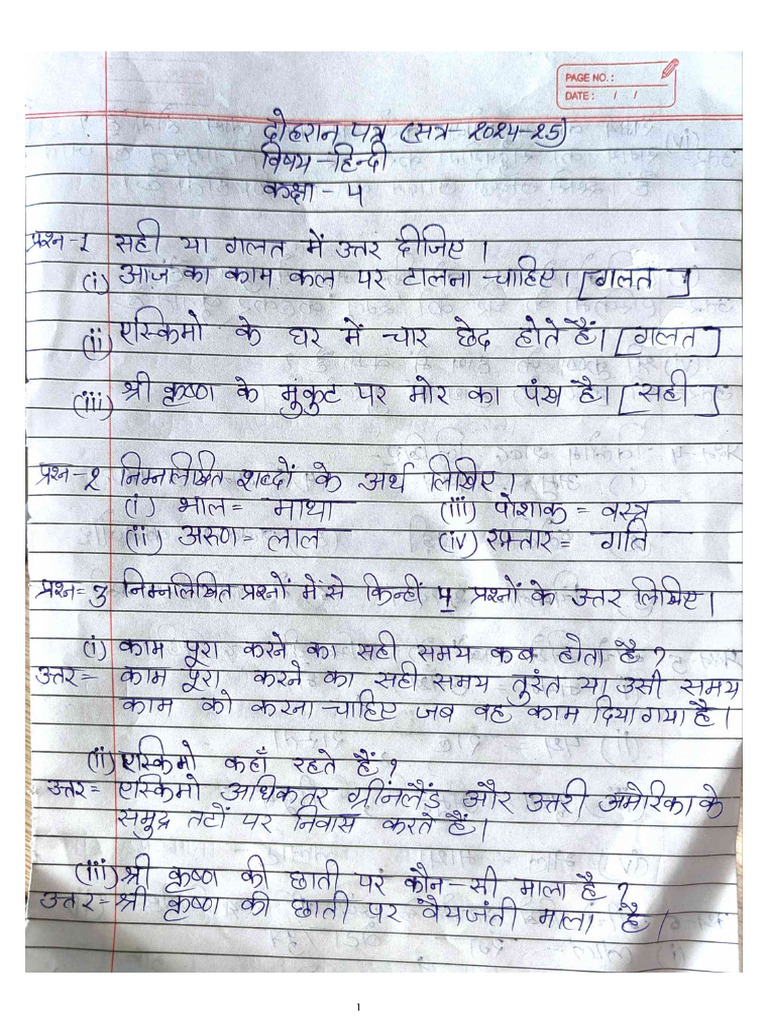 PAGE NO.:
DATE: / /
दोहरान पत्र (सत्र-2024-25)
विषय-हिन्दी
कक्षा - 5
प्रश्न-1 सही या गलत में उत्तर दीजिए ।
(i) आज का काम कल पर टालना चाहिए। [गलत]
(ii) एस्किमो के घर में चार छेद होते हैं। [गलत]
(iii) श्री कृष्ण के मुंकुट पर मोर का पंख है। [सही]
प्रश्न-2 निम्नलिखित शब्दों के अर्थ लिखिए।
(i) भाल= माथा (iii) पोशाक = वस्त्र
(ii) अरुण= लाल (iv) रफ़्तार= गति
प्रश्न=3 निम्नलिखित प्रश्नों में से किन्हीं 4 प्रश्नों के उत्तर लिखिए।
(i) काम पूरा करने का सही समय कब होता है?
उत्तर= काम पूरा करने का सही समय तुरंत या उसी समय
काम को करना चाहिए जब वह काम दिया गया है।
(ii) एस्किमो कहाँ रहते हैं?
उत्तर= एस्किमो अधिकतर ग्रीनलैंड और उत्तरी अमेरिका के
समुद्र तटों पर निवास करते हैं।
(iii) श्री कृष्ण की छाती पर कौन-सी माला है?
उत्तर= श्री कृष्ण की छाती पर वैयजंती माला है।
1